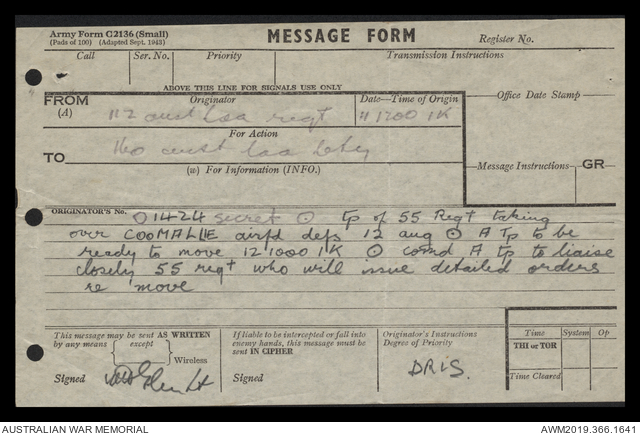 Army Form C2136 (Small)
(Pads of 100) (Adapted Sept. 1943)
MESSAGE FORM
Register No.
Call Ser. No. Priority Transmission Instructions
ABOVE THIS LINE FOR SIGNALS USE ONLY
FROM (A) Originator Date—Time of Origin Office Date Stamp
112 aust laa regt 111200 IK
For Action
TO 160 aust laa bty
(w) For Information (INFO.)
Message Instructions GR
ORIGINATOR'S No. O1424 secret ⊙ tp of 55 Regt taking
over COOMALLIE airfd defs 12 aug ⊙ A Tp to be
ready to move 121000 IK ⊙ comd A tp to liaise
closely 55 regt who will issue detailed orders
re move
This message may be sent AS WRITTEN
by any means except Wireless
Signed Lt
If liable to be intercepted or fall into
enemy hands, this message must be
sent IN CIPHER
Signed
Originator's Instructions
Degree of Priority
DRLS.
Time System Op
THI or TOR
Time Cleared
AUSTRALIAN WAR MEMORIAL AWM2019.366.1641